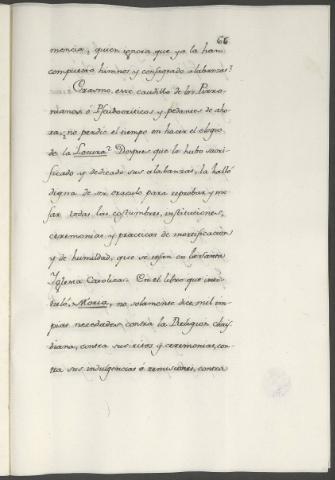 66
mencia, quien ignora que ya la han
compuesto himnos y consagrado alabanzas?
Erasmo, esse caudillo de los Pirro-
nianos ó Pseudocriticos y pedantes de aho-
ra, no perdió el tiempo en hacer el elogio
de la Locura? Despues que la hubo sacri-
ficado y dedicado sus alabanzas, la halló
digna de ser oraculo para reprobar y mo-
far todas las costumbres, instituciones,
ceremonias y practicas de mortificacion
y de humildad, que se usan en la Santa
Iglesia Catolica. En el libro que inti-
tuló, Moria, no solamente dice mil im-
pias necedades contra la Religion chris-
tiana, contra sus ritos y ceremonias, con-
tra sus indulgencias ó remisiones, contra